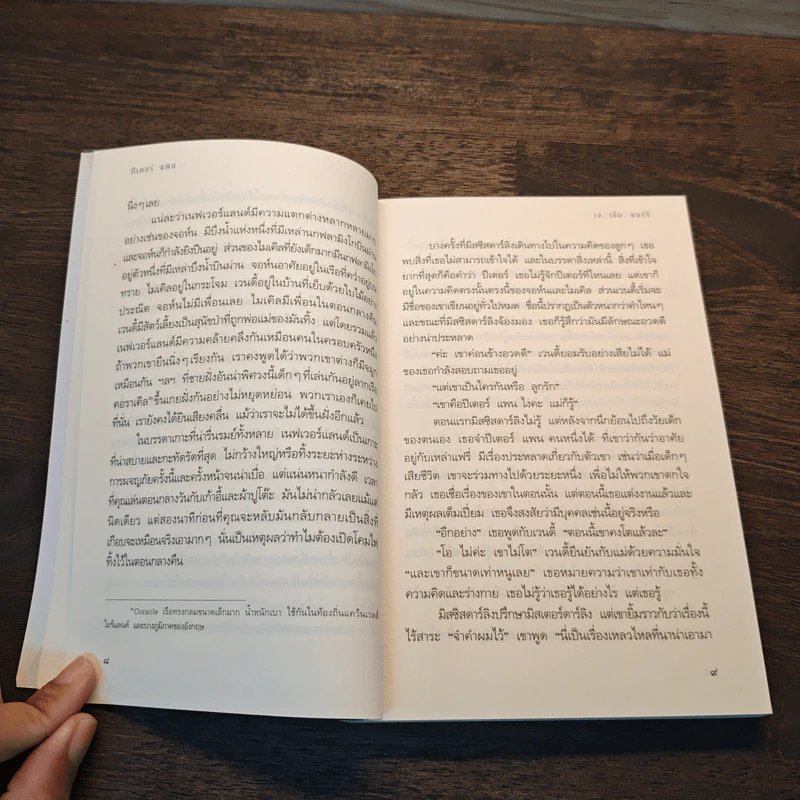 ปีเตอร์ แพน
นิ่งๆ เลย
แน่ละว่าเนฟเวอร์แลนด์มีความแตกต่างหลากหลายมาก
อย่างเช่นของจอห์น มีบึงน้ำแห่งหนึ่งที่มีเหล่านกฟลามิงโกบินผ่าน
และจอห์นก็กำลังยิงปืนอยู่ ส่วนของไมเคิลที่ยังเด็กมากมีนกฟลามิงโก
อยู่ตัวหนึ่งที่มีเหล่าบึงน้ำบินผ่าน จอห์นอาศัยอยู่ในเรือที่คว่ำอยู่บน
ทราย ไมเคิลอยู่ในกระโจม เวนดี้อยู่ในบ้านที่เย็บด้วยใบไม้อย่าง
ประณีต จอห์นไม่มีเพื่อนเลย ไมเคิลมีเพื่อนในตอนกลางคืน
เวนดี้มีสัตว์เลี้ยงเป็นสุนัขป่าที่ถูกพ่อแม่ของมันทิ้ง แต่โดยรวมแล้ว
เนฟเวอร์แลนด์มีความคล้ายคลึงกันเหมือนคนในครอบครัวหนึ่ง
ถ้าพวกเขายืนนิ่งๆ เรียงกัน เราคงพูดได้ว่าพวกเขาต่างก็มีจมูก
เหมือนกัน ฯลฯ ที่ชายฝั่งอันน่าพิศวงนี้เด็กๆ ที่เล่นกันอยู่ลากเรือ
คอราเคิล* ขึ้นเกยฝั่งกันอย่างไม่หยุดหย่อน พวกเราเองก็เคยไป
ที่นั่น เรายังคงได้ยินเสียงคลื่น แม้ว่าเราจะไม่ได้ขึ้นฝั่งอีกแล้ว
ในบรรดาเกาะที่น่ารื่นรมย์ทั้งหลาย เนฟเวอร์แลนด์เป็นเกาะ
ที่น่าสบายและกะทัดรัดที่สุด ไม่กว้างใหญ่หรือทิ้งระยะห่างระหว่าง
การผจญภัยครั้งนี้และครั้งหน้าจนน่าเบื่อ แต่แน่นหนากำลังดี เวลา
ที่คุณเล่นตอนกลางวันกับเก้าอี้และผ้าปูโต๊ะ มันไม่น่ากลัวเลยแม้แต่
นิดเดียว แต่สองนาทีก่อนที่คุณจะหลับมันกลับกลายเป็นสิ่งที่
เกือบจะเหมือนจริงเอามากๆ นั่นเป็นเหตุผลว่าทำไมต้องเปิดโคมไฟ
ทิ้งไว้ในตอนกลางคืน
*Coracle เรือทรงกลมขนาดเล็กมาก น้ำหนักเบา ใช้กันในท้องถิ่นแคว้นเวลส์
ไอร์แลนด์ และบางภูมิภาคของอังกฤษ
๘
เจ. เอ็ม. แบร์รี
บางครั้งที่มิสซิสดาร์ลิงเดินทางไปในความคิดของลูกๆ เธอ
พบสิ่งที่เธอไม่สามารถเข้าใจได้ และในบรรดาสิ่งเหล่านี้ สิ่งที่เข้าใจ
ยากที่สุดก็คือคำว่า ปีเตอร์ เธอไม่รู้จักปีเตอร์ที่ไหนเลย แต่เขาก็
อยู่ในความคิดตรงนั้นตรงนี้ของจอห์นและไมเคิล ส่วนเวนดี้เริ่มจะ
มีชื่อของเขาเขียนอยู่ทั่วไปหมด ชื่อนี้ปรากฏเป็นตัวหนากว่าคำไหนๆ
และขณะที่มิสซิสดาร์ลิงจ้องมอง เธอก็รู้สึกว่ามันมีลักษณะอวดดี
อย่างน่าประหลาด
“ค่ะ เขาค่อนข้างอวดดี” เวนดี้ยอมรับอย่างเสียไม่ได้ แม่
ของเธอกำลังสอบถามเธออยู่
“แต่เขาเป็นใครกันหรือ ลูกรัก”
“เขาคือปีเตอร์ แพน ไงคะ แม่ก็รู้”
ตอนแรกมิสซิสดาร์ลิงไม่รู้ แต่หลังจากนึกย้อนไปถึงวัยเด็ก
ของตนเอง เธอจำปีเตอร์ แพน คนหนึ่งได้ ที่เขาว่ากันว่าอาศัย
อยู่กับเหล่าแฟรี่ มีเรื่องประหลาดเกี่ยวกับตัวเขา เช่นว่าเมื่อเด็กๆ
เสียชีวิต เขาจะร่วมทางไปด้วยระยะหนึ่ง เพื่อไม่ให้พวกเขาตกใจ
กลัว เธอเชื่อเรื่องของเขาในตอนนั้น แต่ตอนนี้เธอแต่งงานแล้วและ
มีเหตุผลเต็มเปี่ยม เธอจึงสงสัยว่ามีบุคคลเช่นนี้อยู่จริงหรือ
“อีกอย่าง” เธอพูดกับเวนดี้ “ตอนนี้เขาคงโตแล้วละ”
“โอ๋ ไม่ค่ะ เขาไม่โต” เวนดี้ยืนยันกับแม่ด้วยความมั่นใจ
“และเขาก็ขนาดเท่าหนูเลย” เธอหมายความว่าเขาเท่ากับเธอทั้ง
ความคิดและร่างกาย เธอไม่รู้ว่าเธอรู้ได้อย่างไร แต่เธอรู้
มิสซิสดาร์ลิงปรึกษามิสเตอร์ดาร์ลิง แต่เขายิ้มราวกับว่าเรื่องนี้
ไร้สาระ “จำคำผมไว้” เขาพูด “นี่เป็นเรื่องเหลวไหลที่นาน่าเอามา
๙